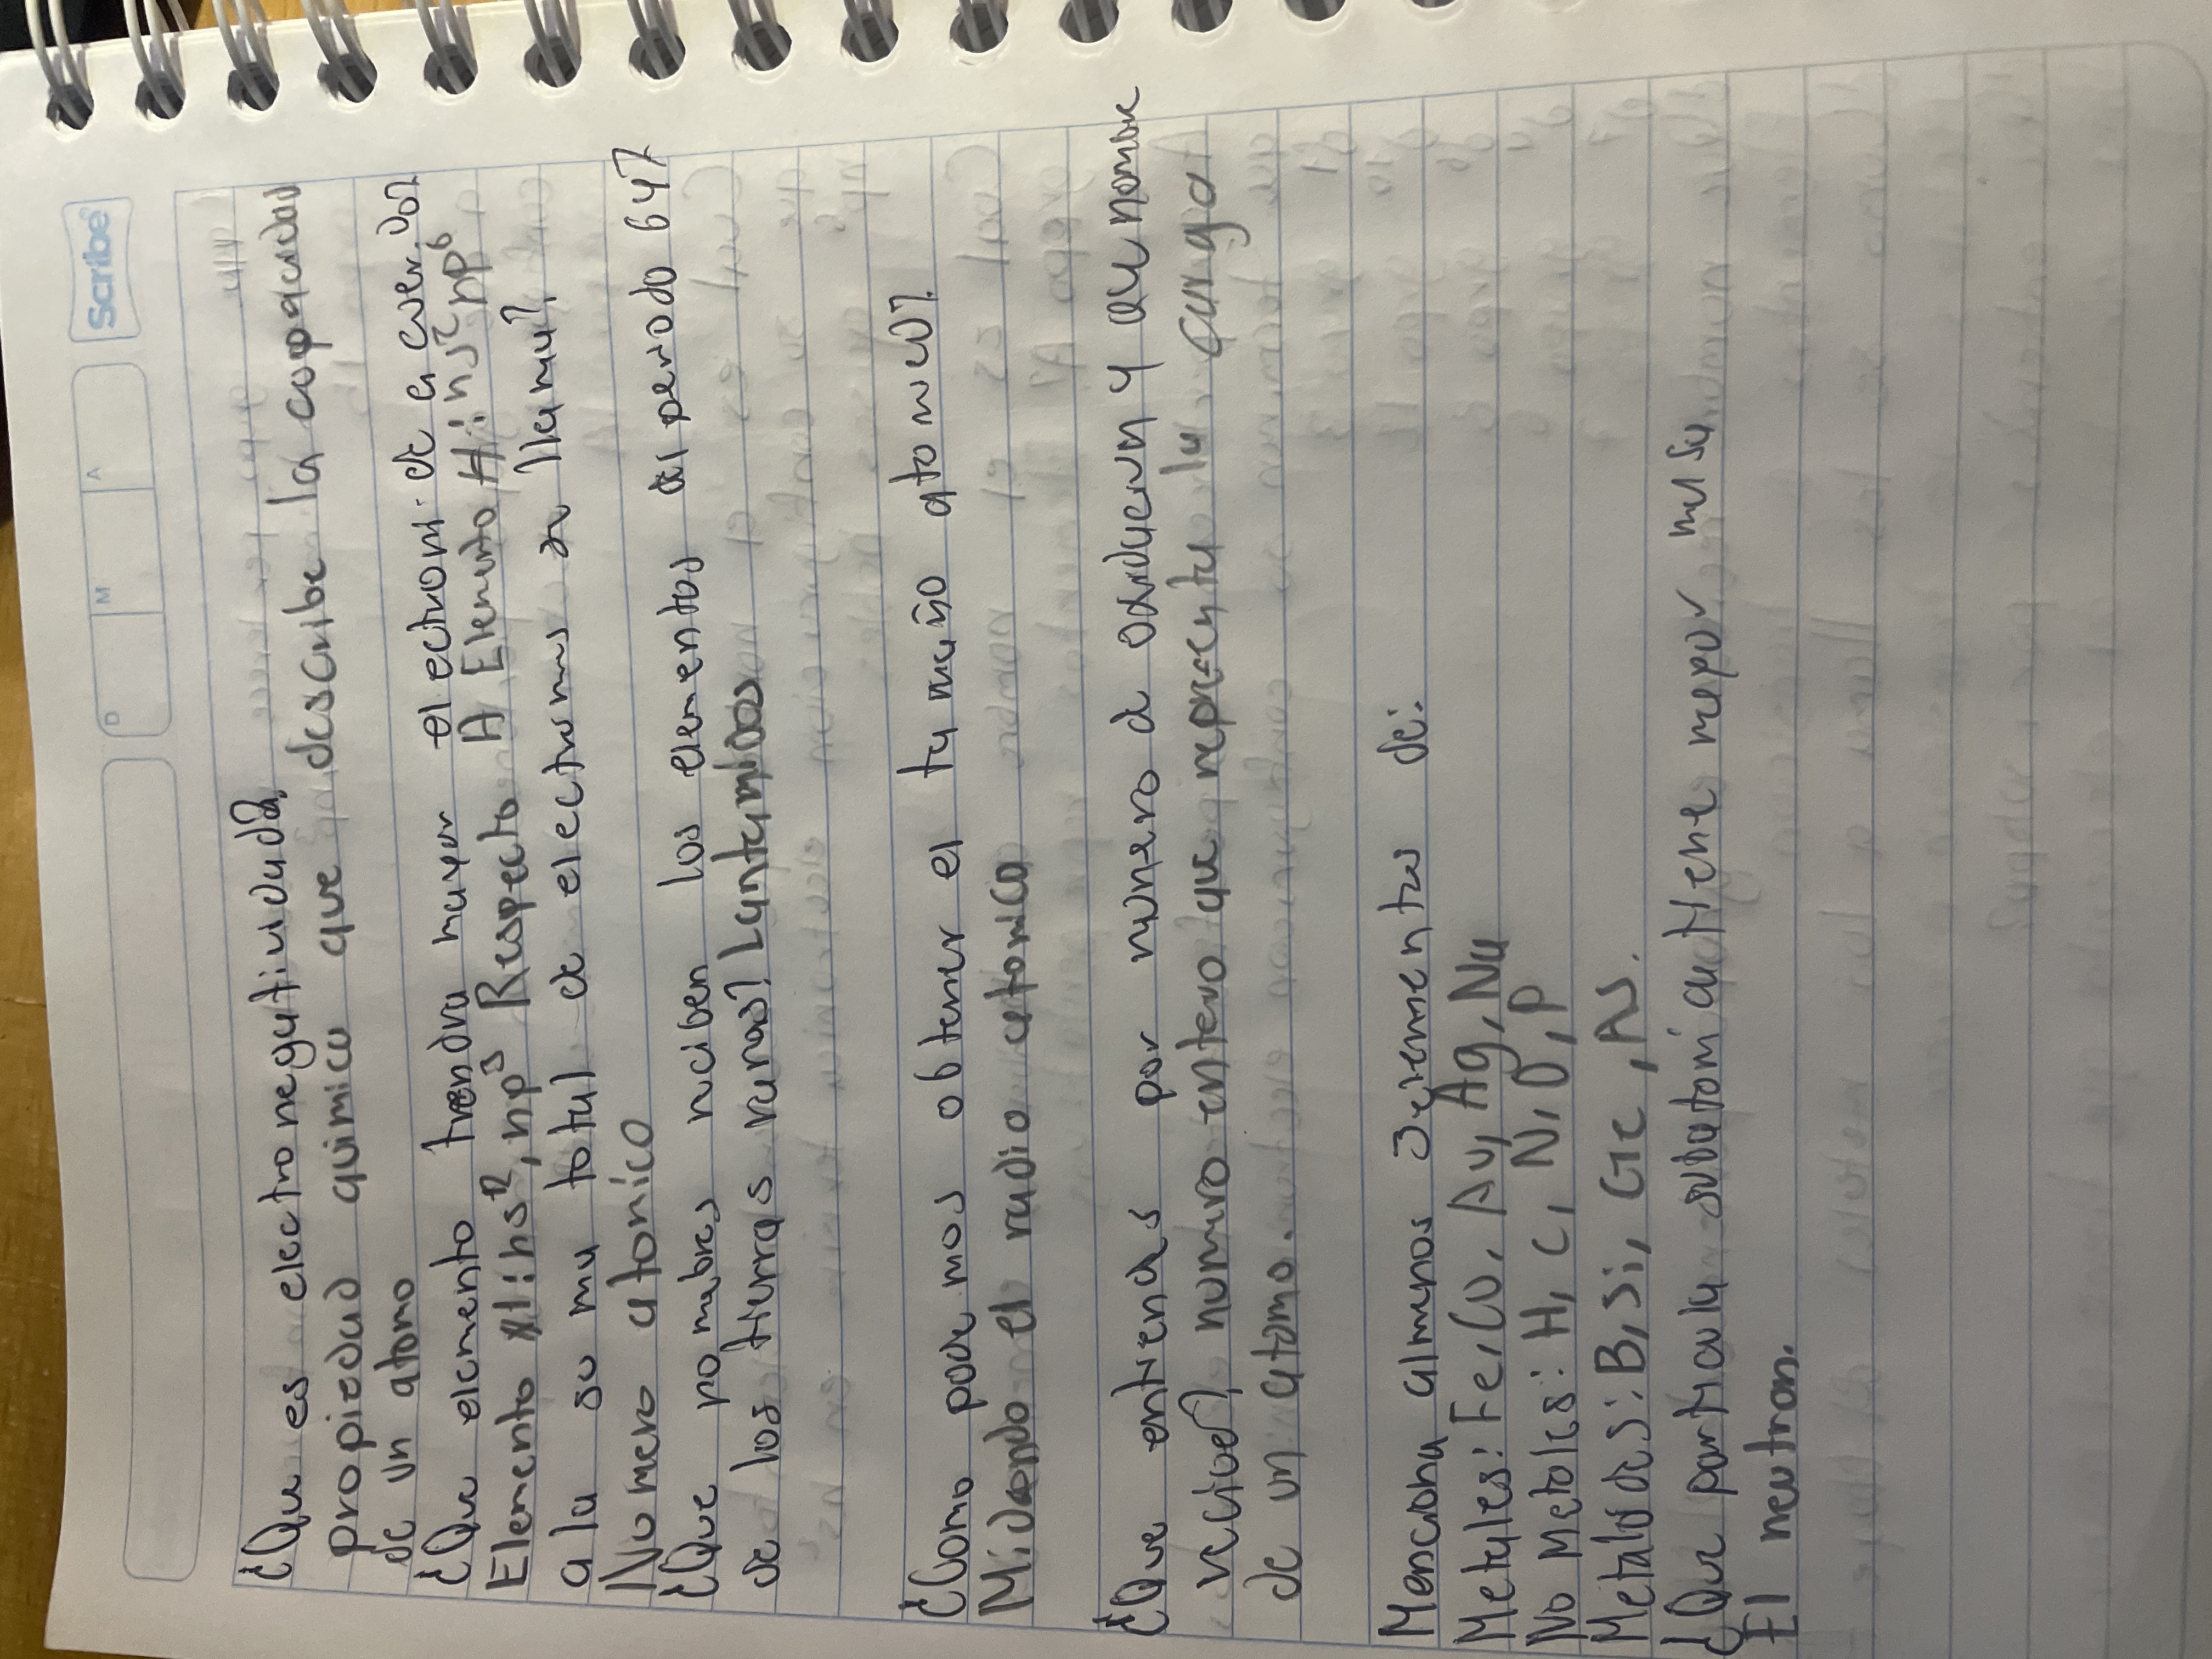 Scribe
D M A
¿Que es electronegatividad?
propiedad quimica que describe la capacidad
de un atomo
¿Que elemento tendra mayor electroni. de a cuerdo?
Elemento X1: ns², np³ Respecto A Elemento H: ns² np⁶
a la su ma total de electrones se llama?
Numero atomico
¿Que nombres reciben los elementos del periodo 6 y 7
de los tierras raras? Lantanidos
¿Como podemos obtener el tamaño atomico?
Midendo el radio atomico
¿Que entiendes por numero de oxidacion y que nombre
recibe? numero entero que representa la carga
de un atomo.
Menciona almenos 3 elementos de:
Metales: Fe, Cu, Au, Ag, Na
No Metales: H, C, N, O, P
Metaloides: B, Si, Ge, As.
¿Que particula subatomica tiene mayor masa
El neutron.